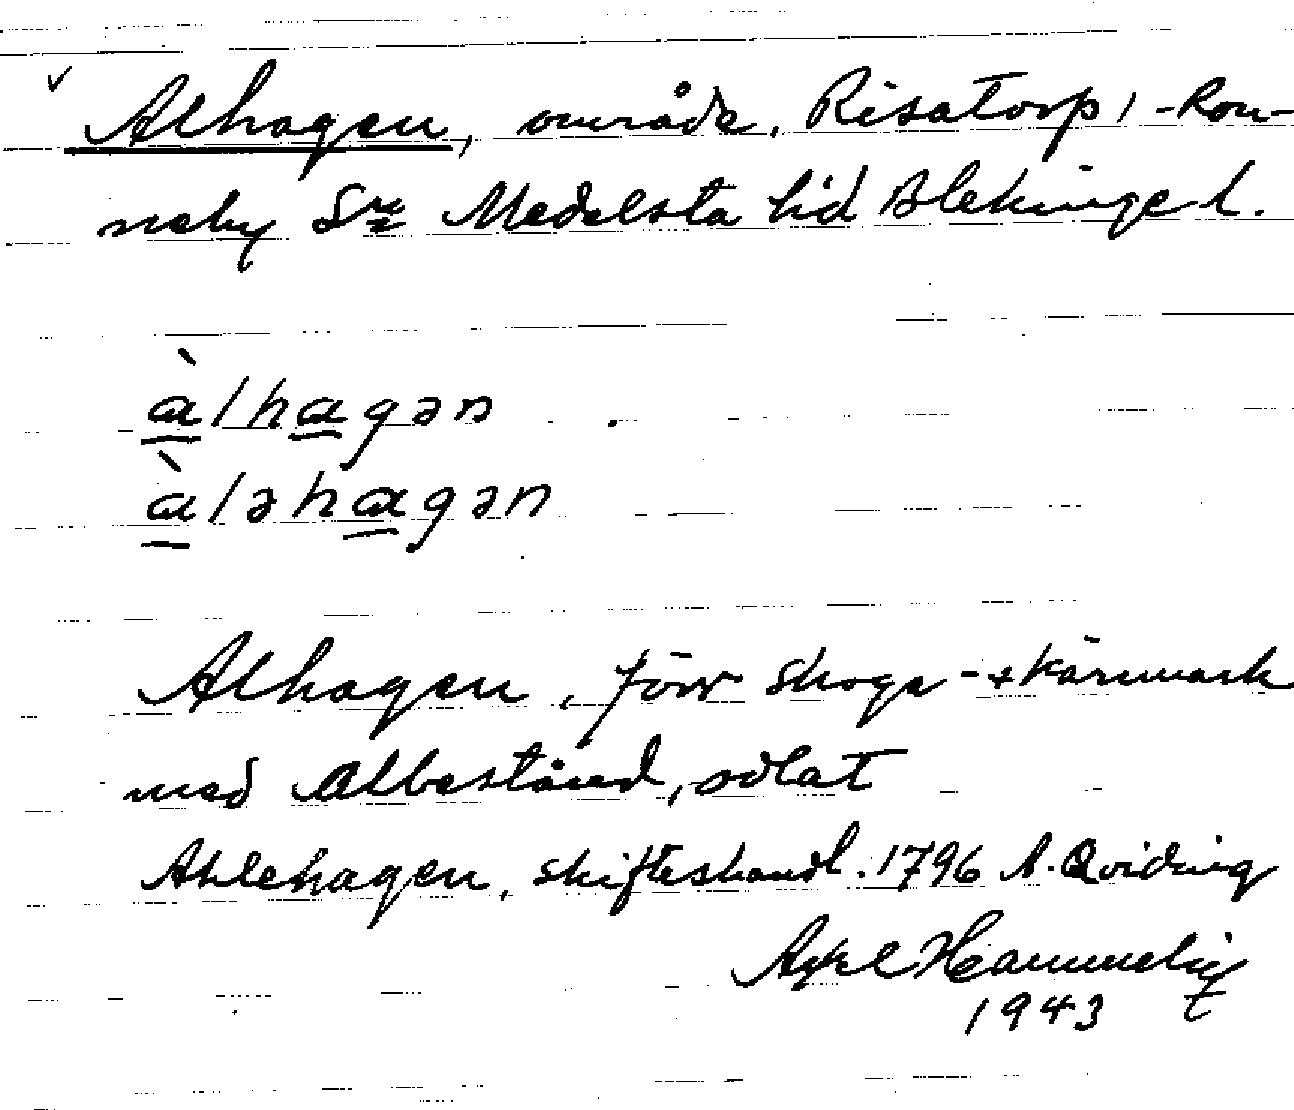 Alhagen, område, Risatorp, Ron-
neby Sn Medelsta hd Blekinge l.
àlhagən
àləhagən
Alhagen, förr skogs- + kärrmark
med albestånd, odlat
Ahlehagen, skifteshandl. 1796 A. Qviding
Axel Hammelig
1943